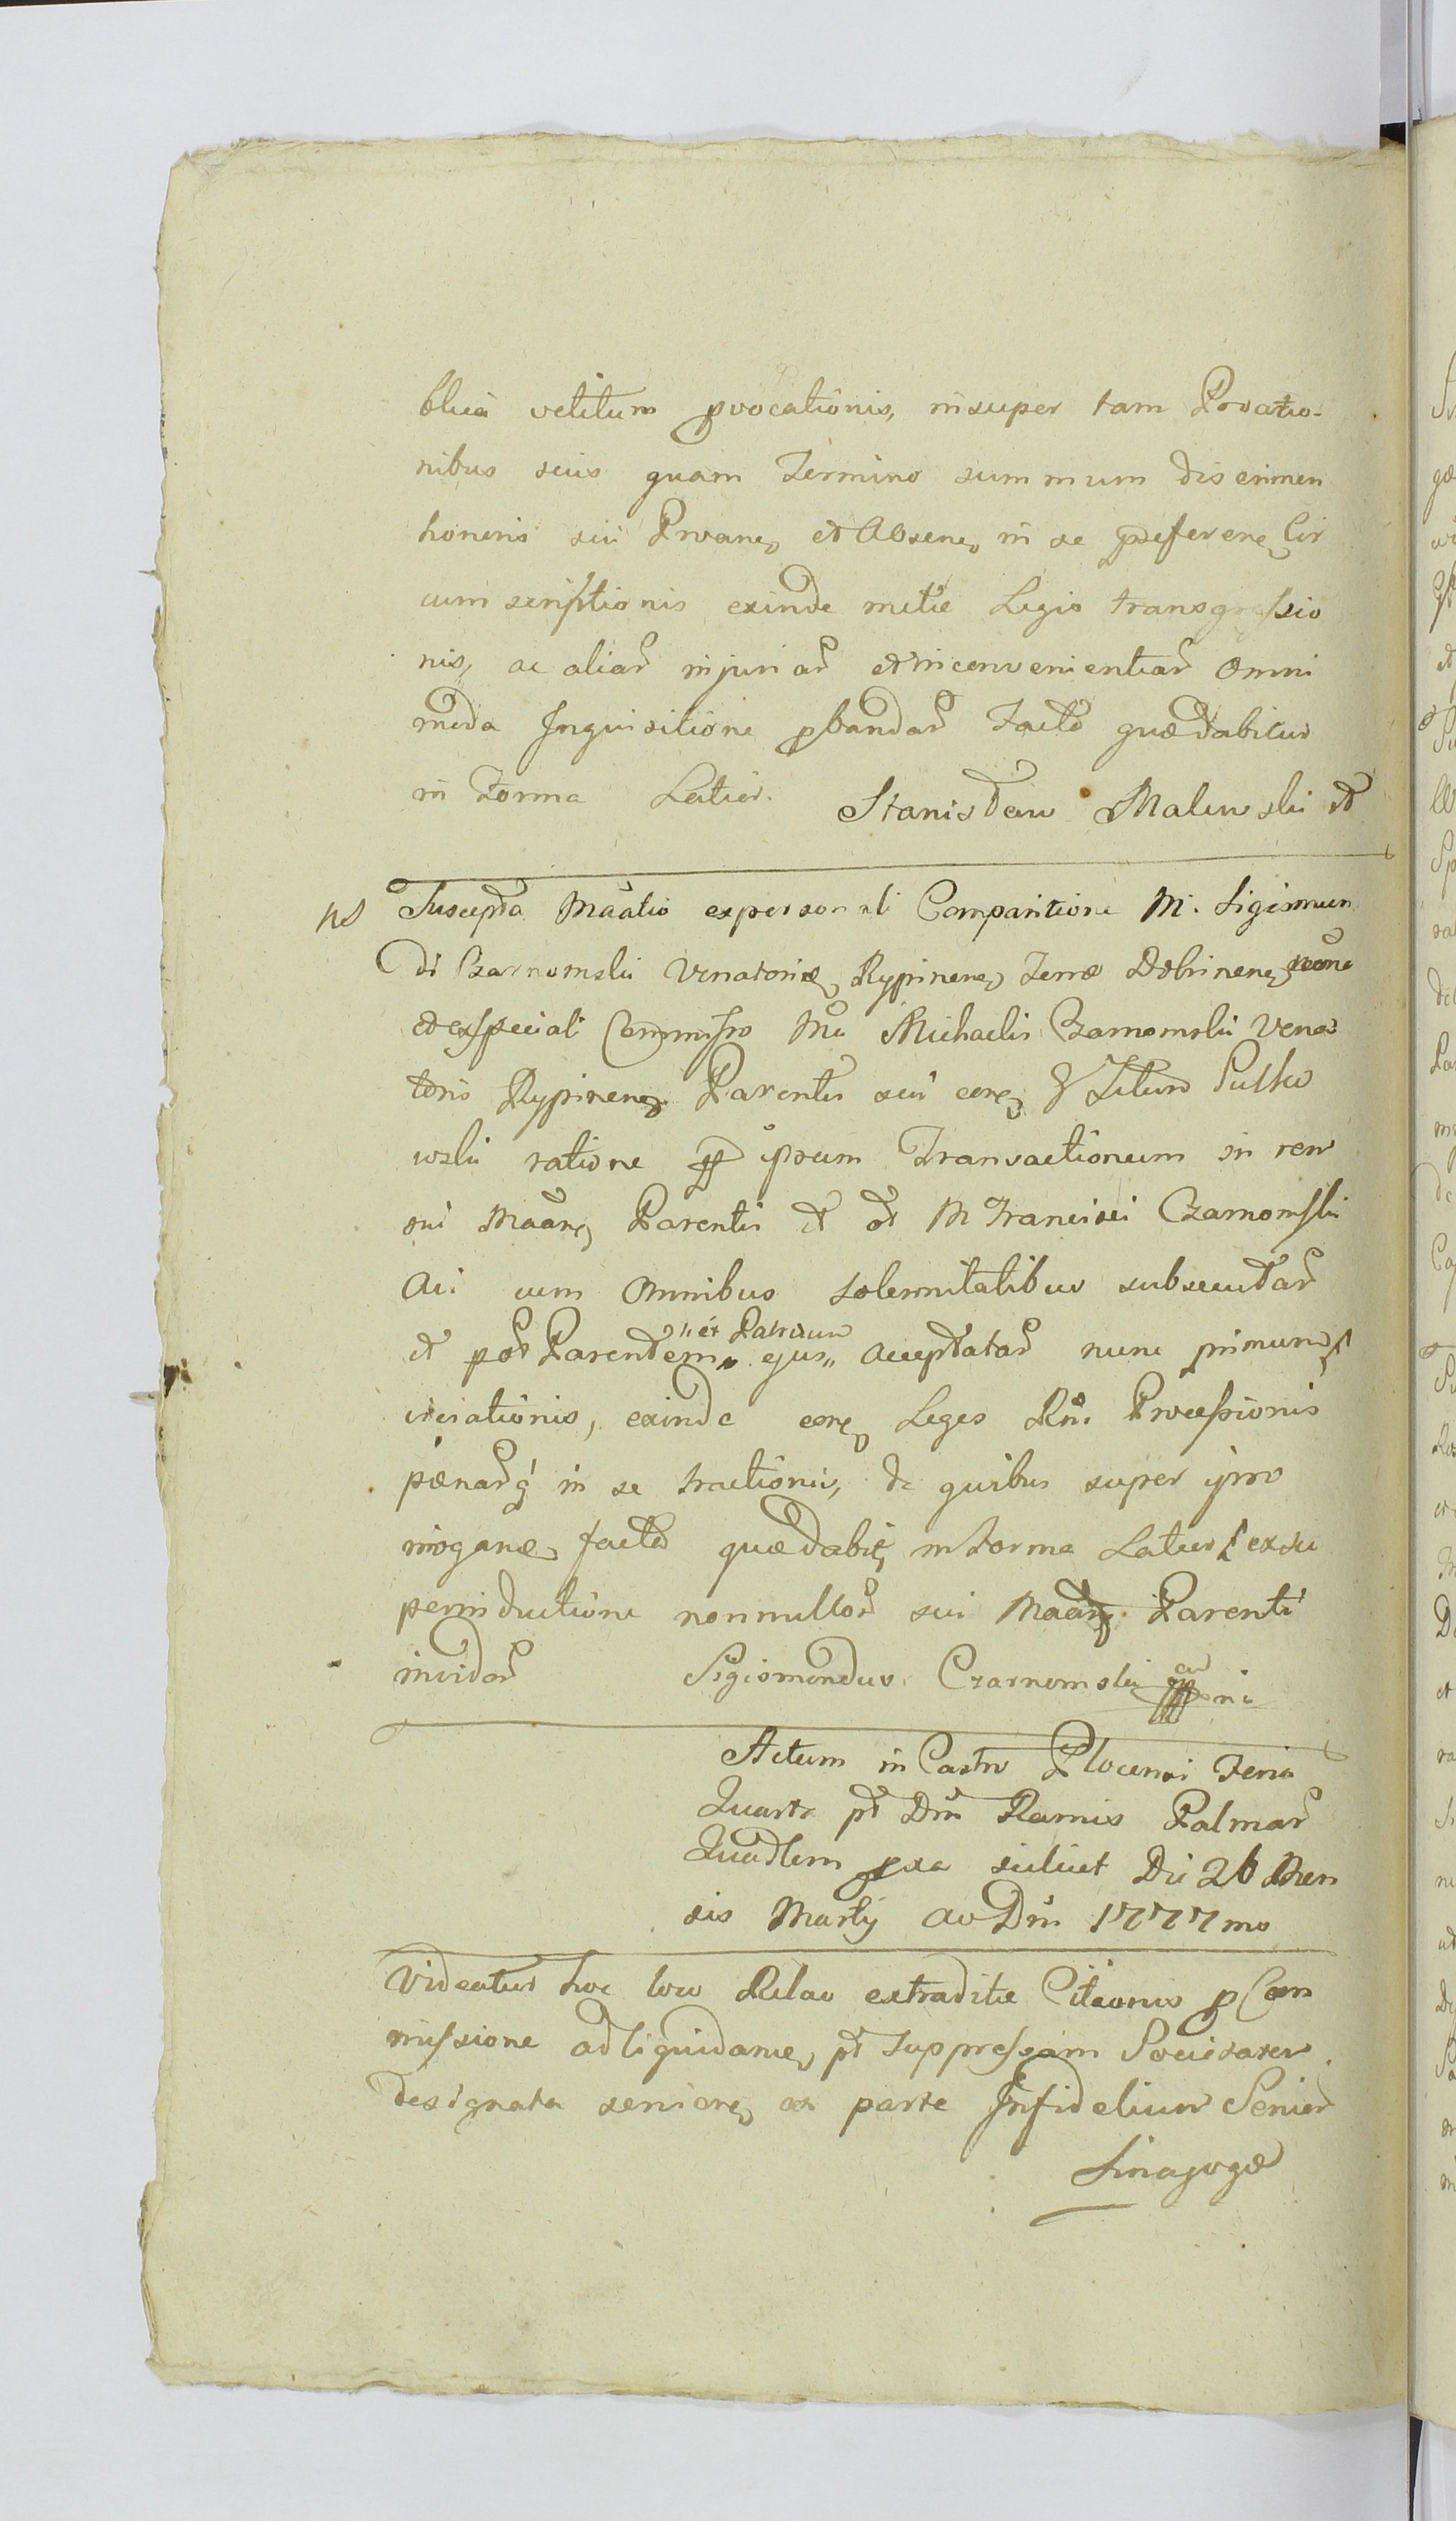 blica vetitum pvocationis, insuper tam Provatio-
nibus suis quam Termino summum discrimen
honoris sui Provane, et Absene, in se pseferene, Cir
cumscriptionis exinde mitie Legis transgressio
nis, ac aliar injuriar et inconvenientiar omni
moda Inquisitione pbandar facto quæ dabitur
in Forma Latior. Stanislaw Malewski
ns Suscepta Maatio ex personali Comparitione M. Sigismun
di Czarnomski Venatoriæ, Rypinene, Terræ Dobrinene, noe
et ex speciali Commisso M. Michaelis Czarnomski Vena
toris Rypinene, Parentis sui cone, Titum Sutko
wski ratione ipsum Transactionum in rem
sui Maane, Parentis et M Francisci Czarnomski
Aci cum omnibus solennitatibus subsecutar
et Parentem "et Patruum ejus" acceptatar nunc primum
ciationis, exinde cone, Leges Rni Processionis
pænarq in se tractionis, de quibus super ipso
nioganæ, facto quæ dabit, in Forma Latior ex su
perinductione nonnullor sui Maane, Parenti
invidar Sigismondus Czarnomski
Actum in Castro Plocensi Feria
Quarta pt Dm Ramis Palmar
Quadlem pxa scilicet Die 26 Men
sis Martij Ao Dni 1777 mo
Videatur hoc loco Relao extraditæ Citaonis p Com
missione ad liquidane, pt suppressam Societatem
designata seniore, ex parte Infidelium Senior
Sinagogæ